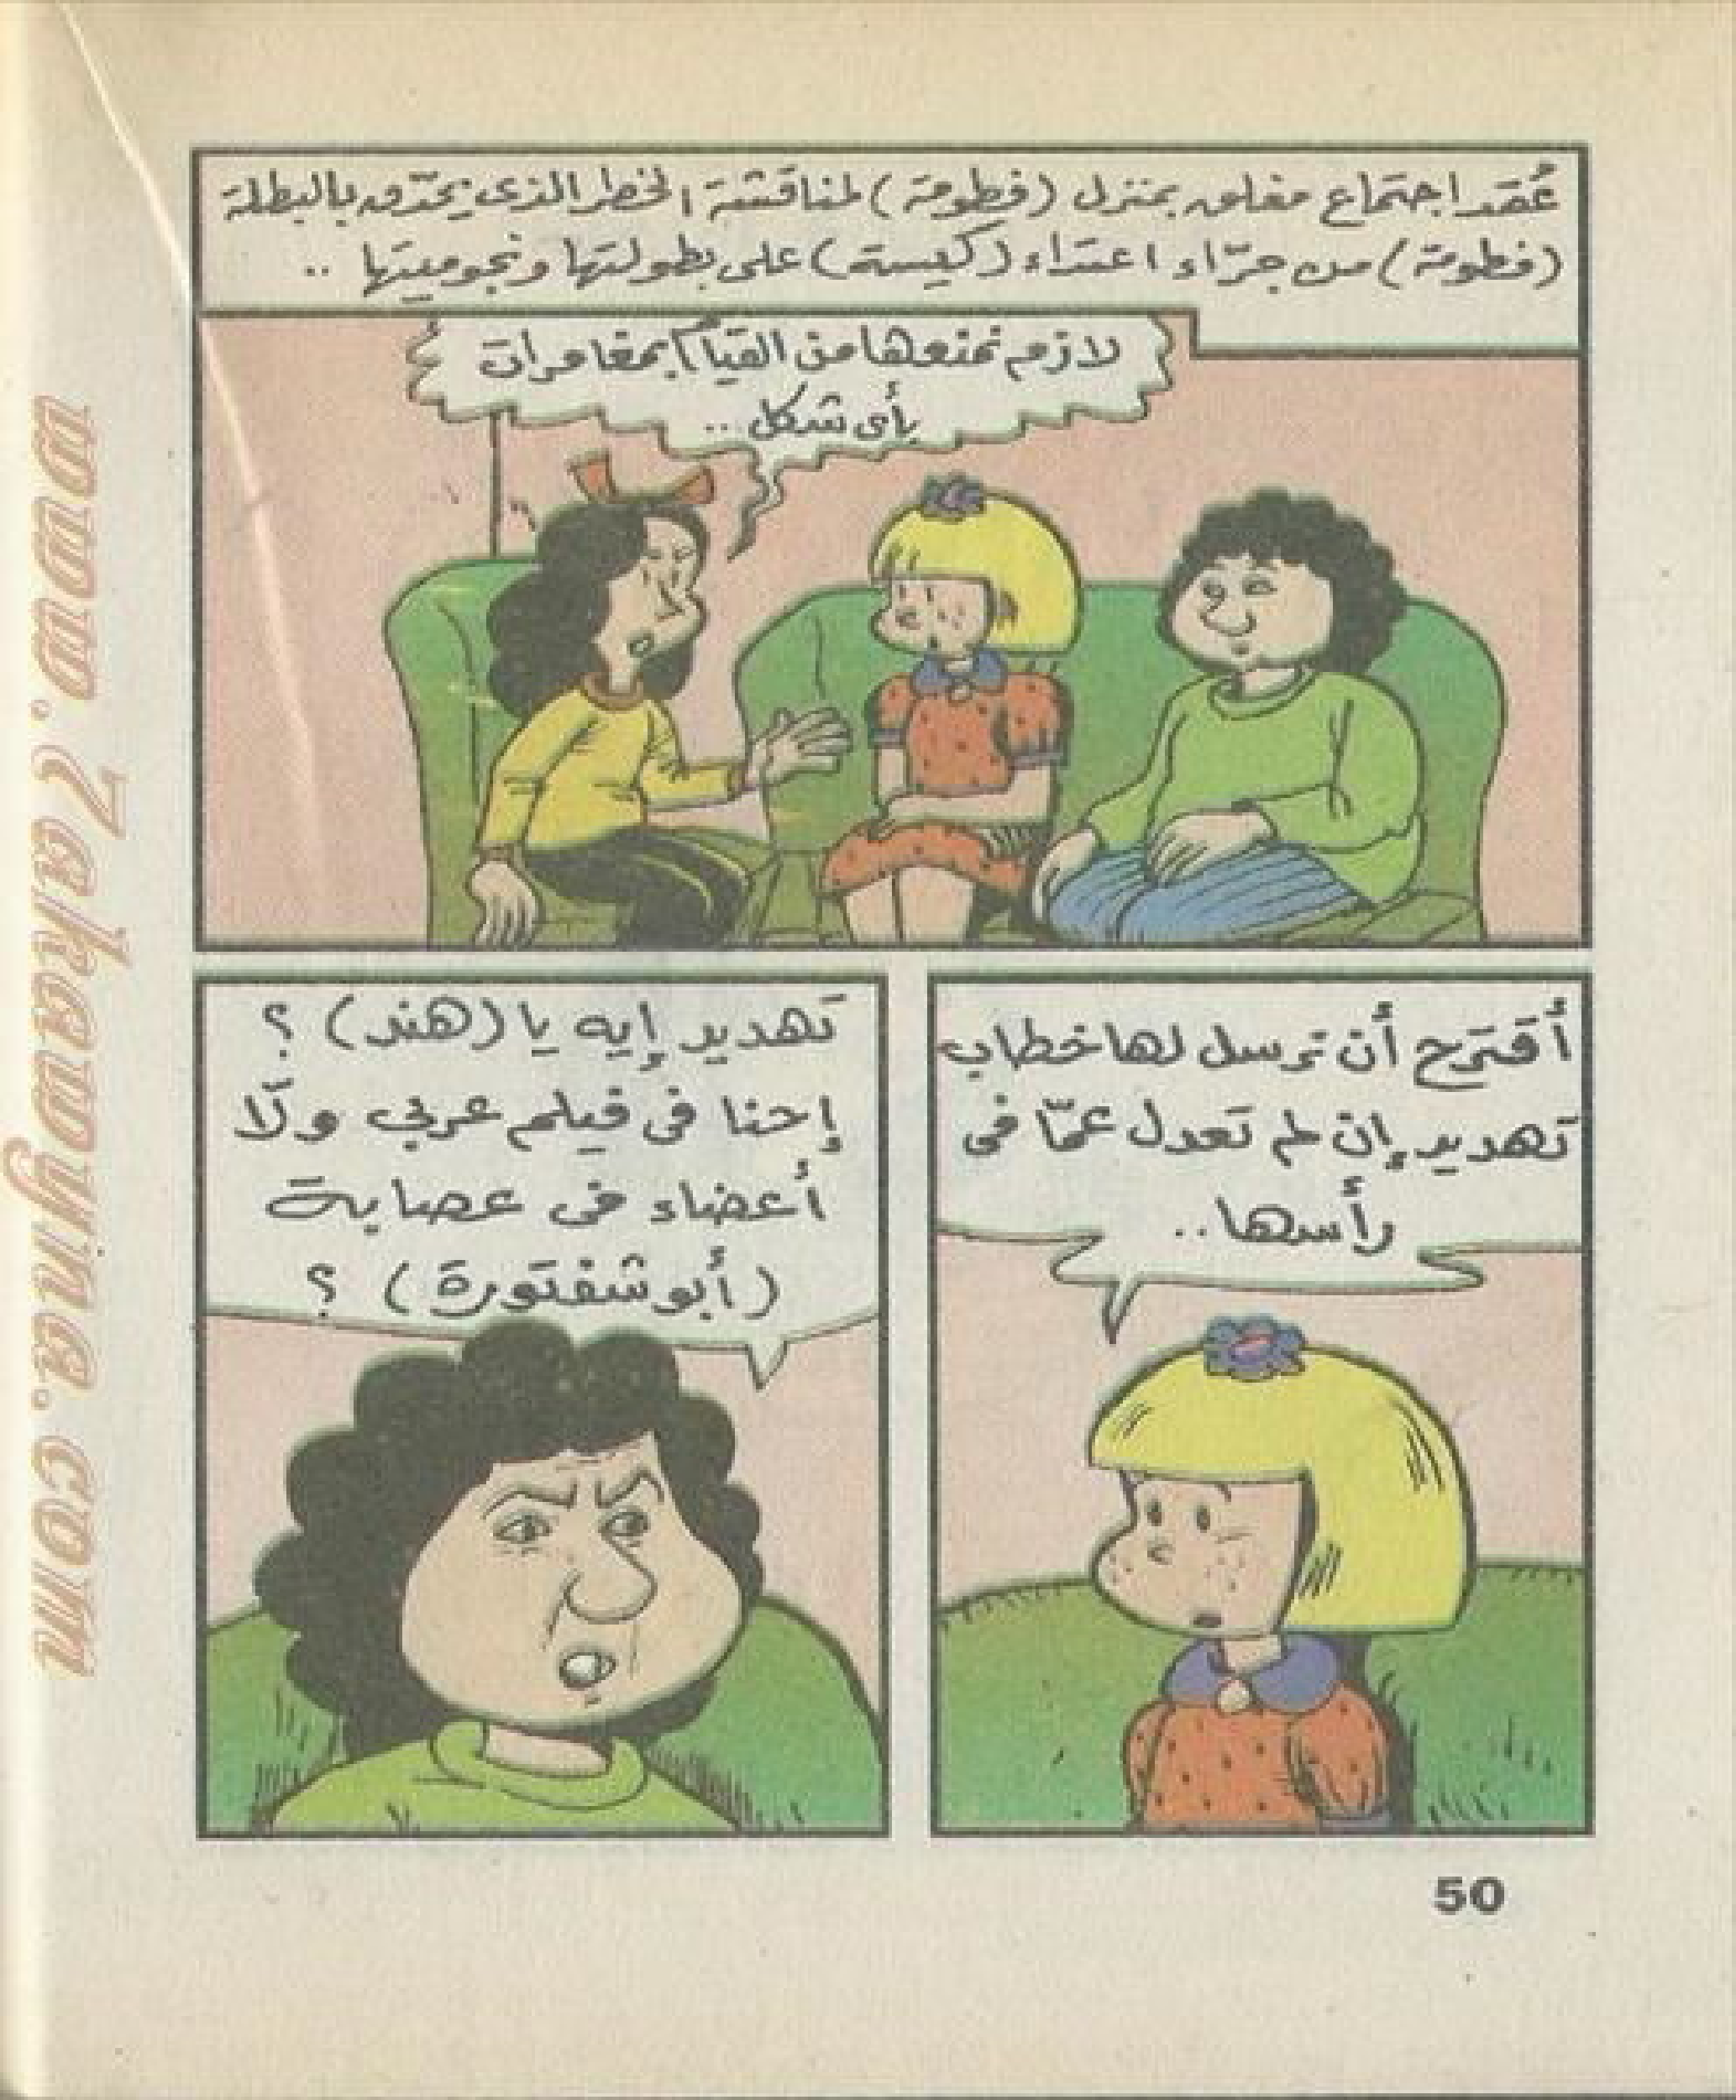 عُقد اجتماع مغلق بمنزل (فطومة) لمناقشة الخطر الذى يحدّق بالبطلة
(فطومة) من جرّاء اعتداء (كيسة) على بطولتها ونجوميتها ..
لازم نمنعها من القيام بمغامرات
بأى شكل ...
أقترح أن نرسل لها خطاب
تهديد إن لم تعدل عمّا فى
رأسها ..
تهديد إيه يا (هند) ؟
إحنا فى فيلم عربى ولّا
أعضاء فى عصابة
(أبو شفتورة) ؟
50
www.7akawyna.com